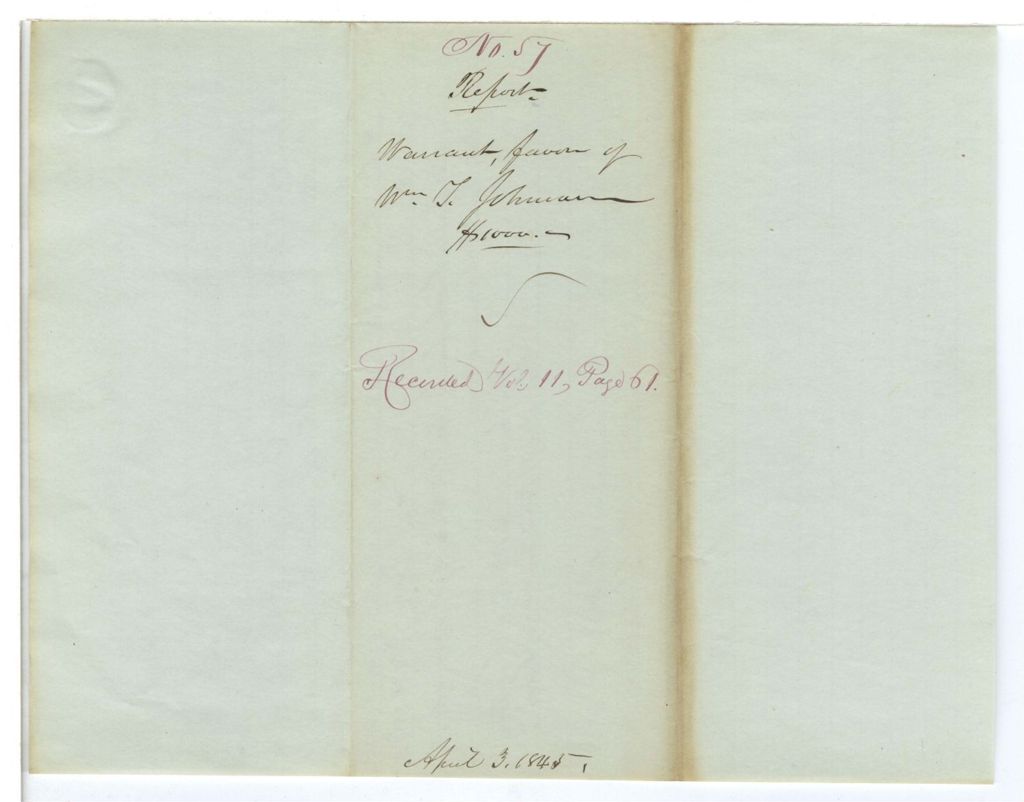 No. 57
Report
Warrant, favor of
Wm. T. Johnson
$1000.
Recorded, Vol. 11, Page 61.
April 3. 1845.